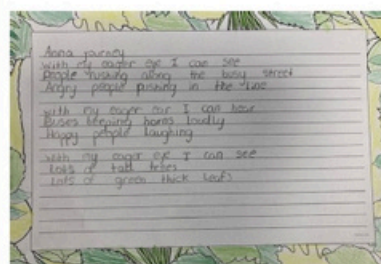 Anna journey
With my eager eye I can see
People rushing along the busy street
Angry people pushing in the line
With my eager ear I can hear
Buses beeping horns loudly
Happy people laughing
With my eager eye I can see
Lots of tall trees
Lots of green thick leafs